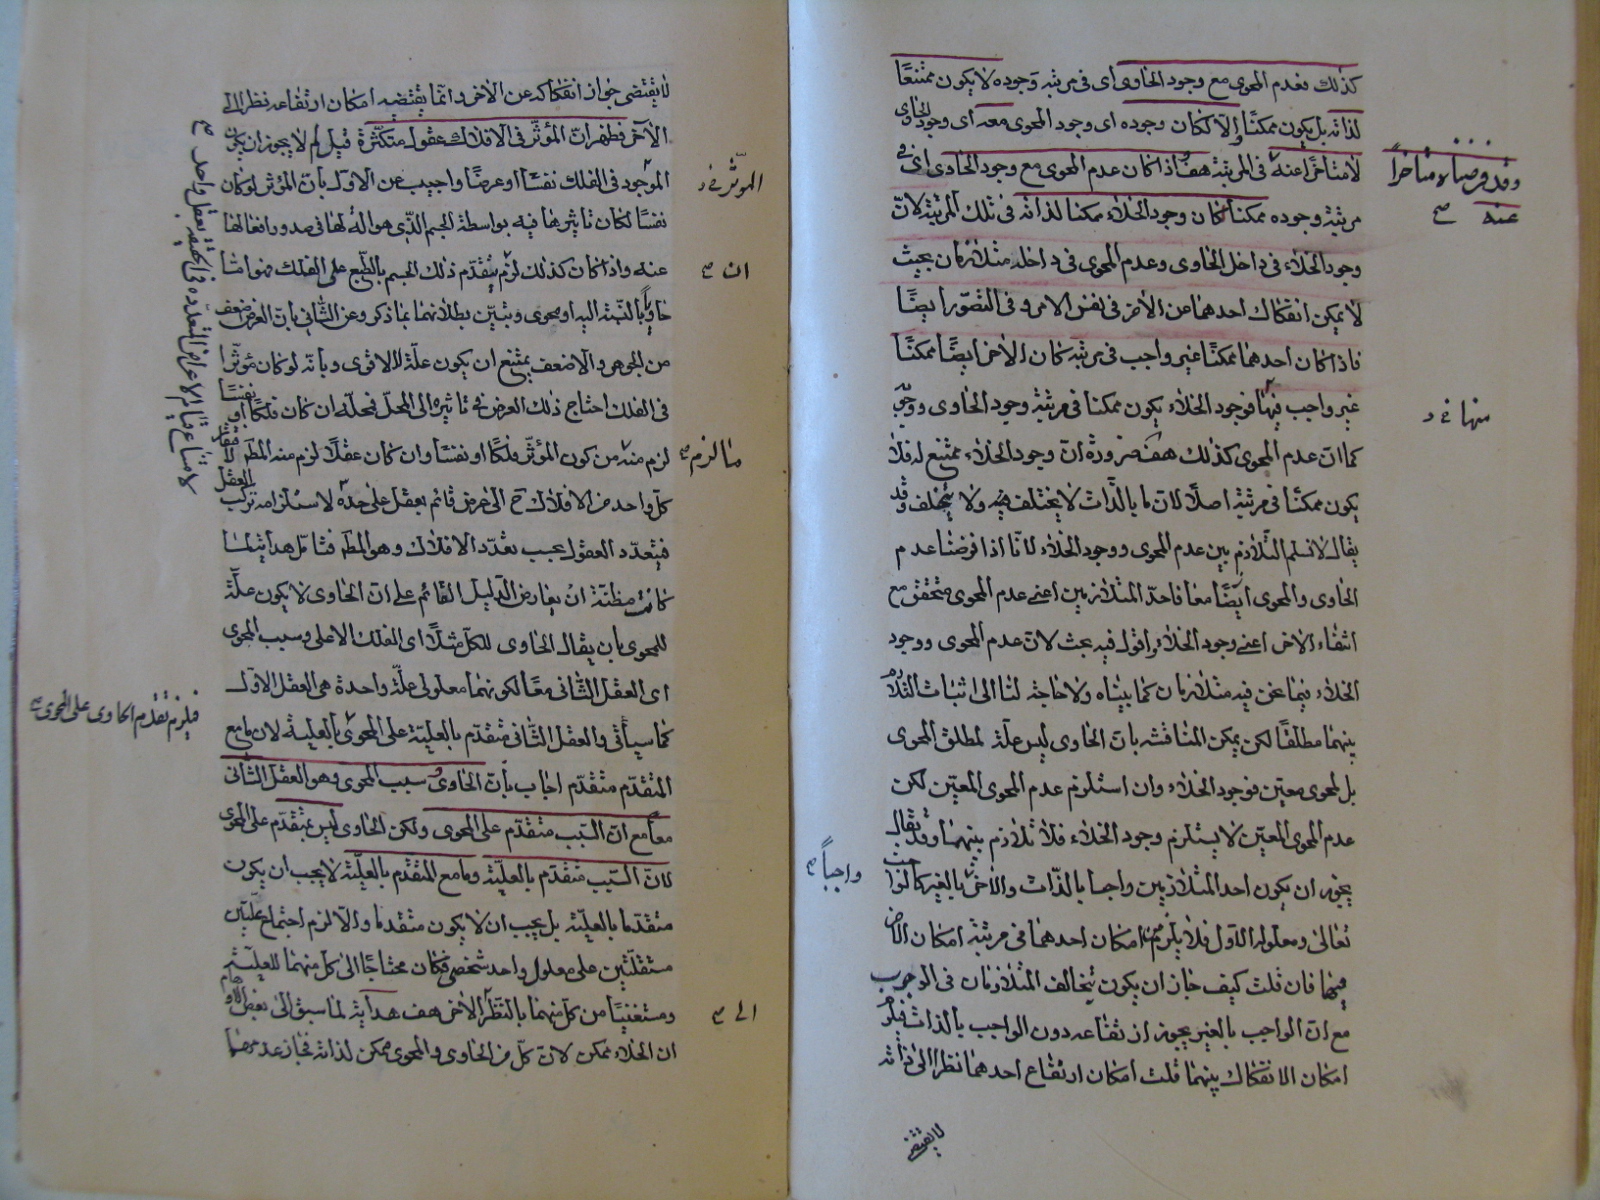 كذلك فعدم المحوى مع وجود الحاوى اى فى مرتبة وجوده لا يكون ممتنعًا
لذاته بل يكون ممكنًا والّا لكان وجوده اى وجود المحوى معه اى وجود الحاوى
لا متأخرًا عنه فى المرتبة هف واذا كان عدم المحوى مع وجود الحاوى اى فى
وقد فرضناه متأخرًا
عنه صح
مرتبة وجوده ممكنا كان وجود الخلاء ممكنا لذاته فى تلك المرتبة لانّ
وجود الخلاء فى داخل الحاوى وعدم المحوى فى داخله متلازمان بحيث
لا يمكن انفكاك احدهما عن الآخر فى نفس الامر وفى التصوّر ايضًا
فاذا كان احدهما ممكنًا غير واجب فى مرتبة كان الآخر ايضًا ممكنًا
غير واجب فيها فوجود الخلاء يكون ممكنا فى مرتبة وجود الحاوى ووجوبه
منها
كما انّ عدم المحوى كذلك هف ضرورة انّ وجود الخلاء ممتنع له فلا
يكون ممكنًا فى مرتبة اصلًا لانّ ما بالذّات لا يختلف فيه ولا يتخلف وقد
يقال لا نسلم التّلازم بين عدم المحوى ووجود الخلاء لانّا اذا فرضنا عدم
الحاوى والمحوى ايضًا معا فاحد المتلازمين اعنى عدم المحوى متحقق مع
انتفاء الآخر اعنى وجود الخلاء واقول فيه بحث لان عدم المحوى ووجود
الخلاء فيما نحن فيه متلازمان كما بيناه ولا حاجة لنا الى اثبات التلازم
بينهما مطلقًا لكن يمكن المناقشه بان الحاوى ليس علّة لمطلق المحوى
بل لمحوى معيّن فوجود الخلاء وان استلزم عدم المحوى المعيّن لكن
عدم المحوى المعيّن لا يستلزم وجود الخلاء فلا تلازم بينهما وقد يقال
يجوز ان يكون احد المتلازمين واجبا بالذّات والآخر بالغير كالواجب
واجباً صح
تعالى ومعلوله الاول فلا يلزم امكان احدهما فى مرتبة امكان الآخر
فيها فان قلت كيف جاز ان يكون يتخالف المتلازمان فى الوجوب
مع انّ الواجب بالغير يجوز ارتفاعه دون الواجب بالذات فيلزم
امكان الانفكاك بينهما قلت امكان ارتفاع احدهما نظرا الى ذاته
لا يقتضى
لا يقتضى جواز انفكاكه عن الآخر وانّما يقتضيه امكان ارتفاعه نظر الى
الآخر فظهر انّ المؤثّر فى الافلاك عقول متكثرة قيل لم لا يجوز ان يكون
الموجود فى الفلك نفسًا او عرضًا واجيب عن الاوّل بانّ المؤثر لو كان
المؤثّر
نفسًا لكان تأثيرها فيه بواسطة الجسم الذّى هو آلة لها فى صدور افعالها
عنه واذا كان كذلك لزم يتقدّم ذلك الجسم بالطّبع على الفلك فهو امّا
ان صح
حاويًا بالنّسبة اليه او محوى وتبيّن بطلانهما بما ذكر وعن الثّانى بانّ العرض اضعف
من الجوهر والاضعف يمتنع ان يكون علّة للاقوى وبانّه لو كان مؤثّرا
فى الفلك احتاج ذلك العرض فى تاثيره الى المحلّ فمحلّه ان كان فلكًا او نفسًا
لزم منه من كون المؤثّر فلكًا او نفسًا وان كان عقلًا لزم منه المط لافتقار
ما لزم صح
كلّ واحد من الافلاك ح الى عرض قائم بعقل على حدّة لاستلزامه تركّب العقل
لامتناع قيام الاعراض المتعدّده فى الحقيقة بعقل واحد صح
فيتعدّد العقول بحسب تعدّد الافلاك وهو المط فتامّل هداية لمّا
كانت مظنّة ان يعارض الدّليل القائم على انّ الحاوى لا يكون علّة
للمحوى بان يقال الحاوى للكل مثلًا اى الفلك الاعلى وسبب المحوى
اى العقل الثّانى معًا لكونهما معلولى علّة واحدة هى العقل الاول
كما سيأتى والعقل الثّانى متقدّم بالعليّة على المحوى بالعلية لان ما مع
فيلزم تقدّم الحاوى على المحوى صح
المتقدّم متقدّم اجاب بانّ الحاوى وسبب المحوى وهو العقل الثانى
معا مع انّ السّبب متقدّم على المحوى ولكن الحاوى ليس بمتقدّم على المحوى
لانّ السّبب متقدّم بالعليّة وما مع المتقدّم بالعليّة لا يجب ان يكون
متقدّما بالعليّة بل يجب ان لا يكون متقدما والّا لزم اجتماع علّتين
مستقلّتين على معلول واحد شخصى فكان محتاجًا الى كلّ منهما للعليّة
ومستغنيًا من كلّ منهما بالنّظر الآخر هف هداية لما سبق الى بعض الاوهام
الى صح
ان الخلاء ممكن لانّ كلّ من الحاوى والمحوى ممكن لذاته فجاز عدمهما